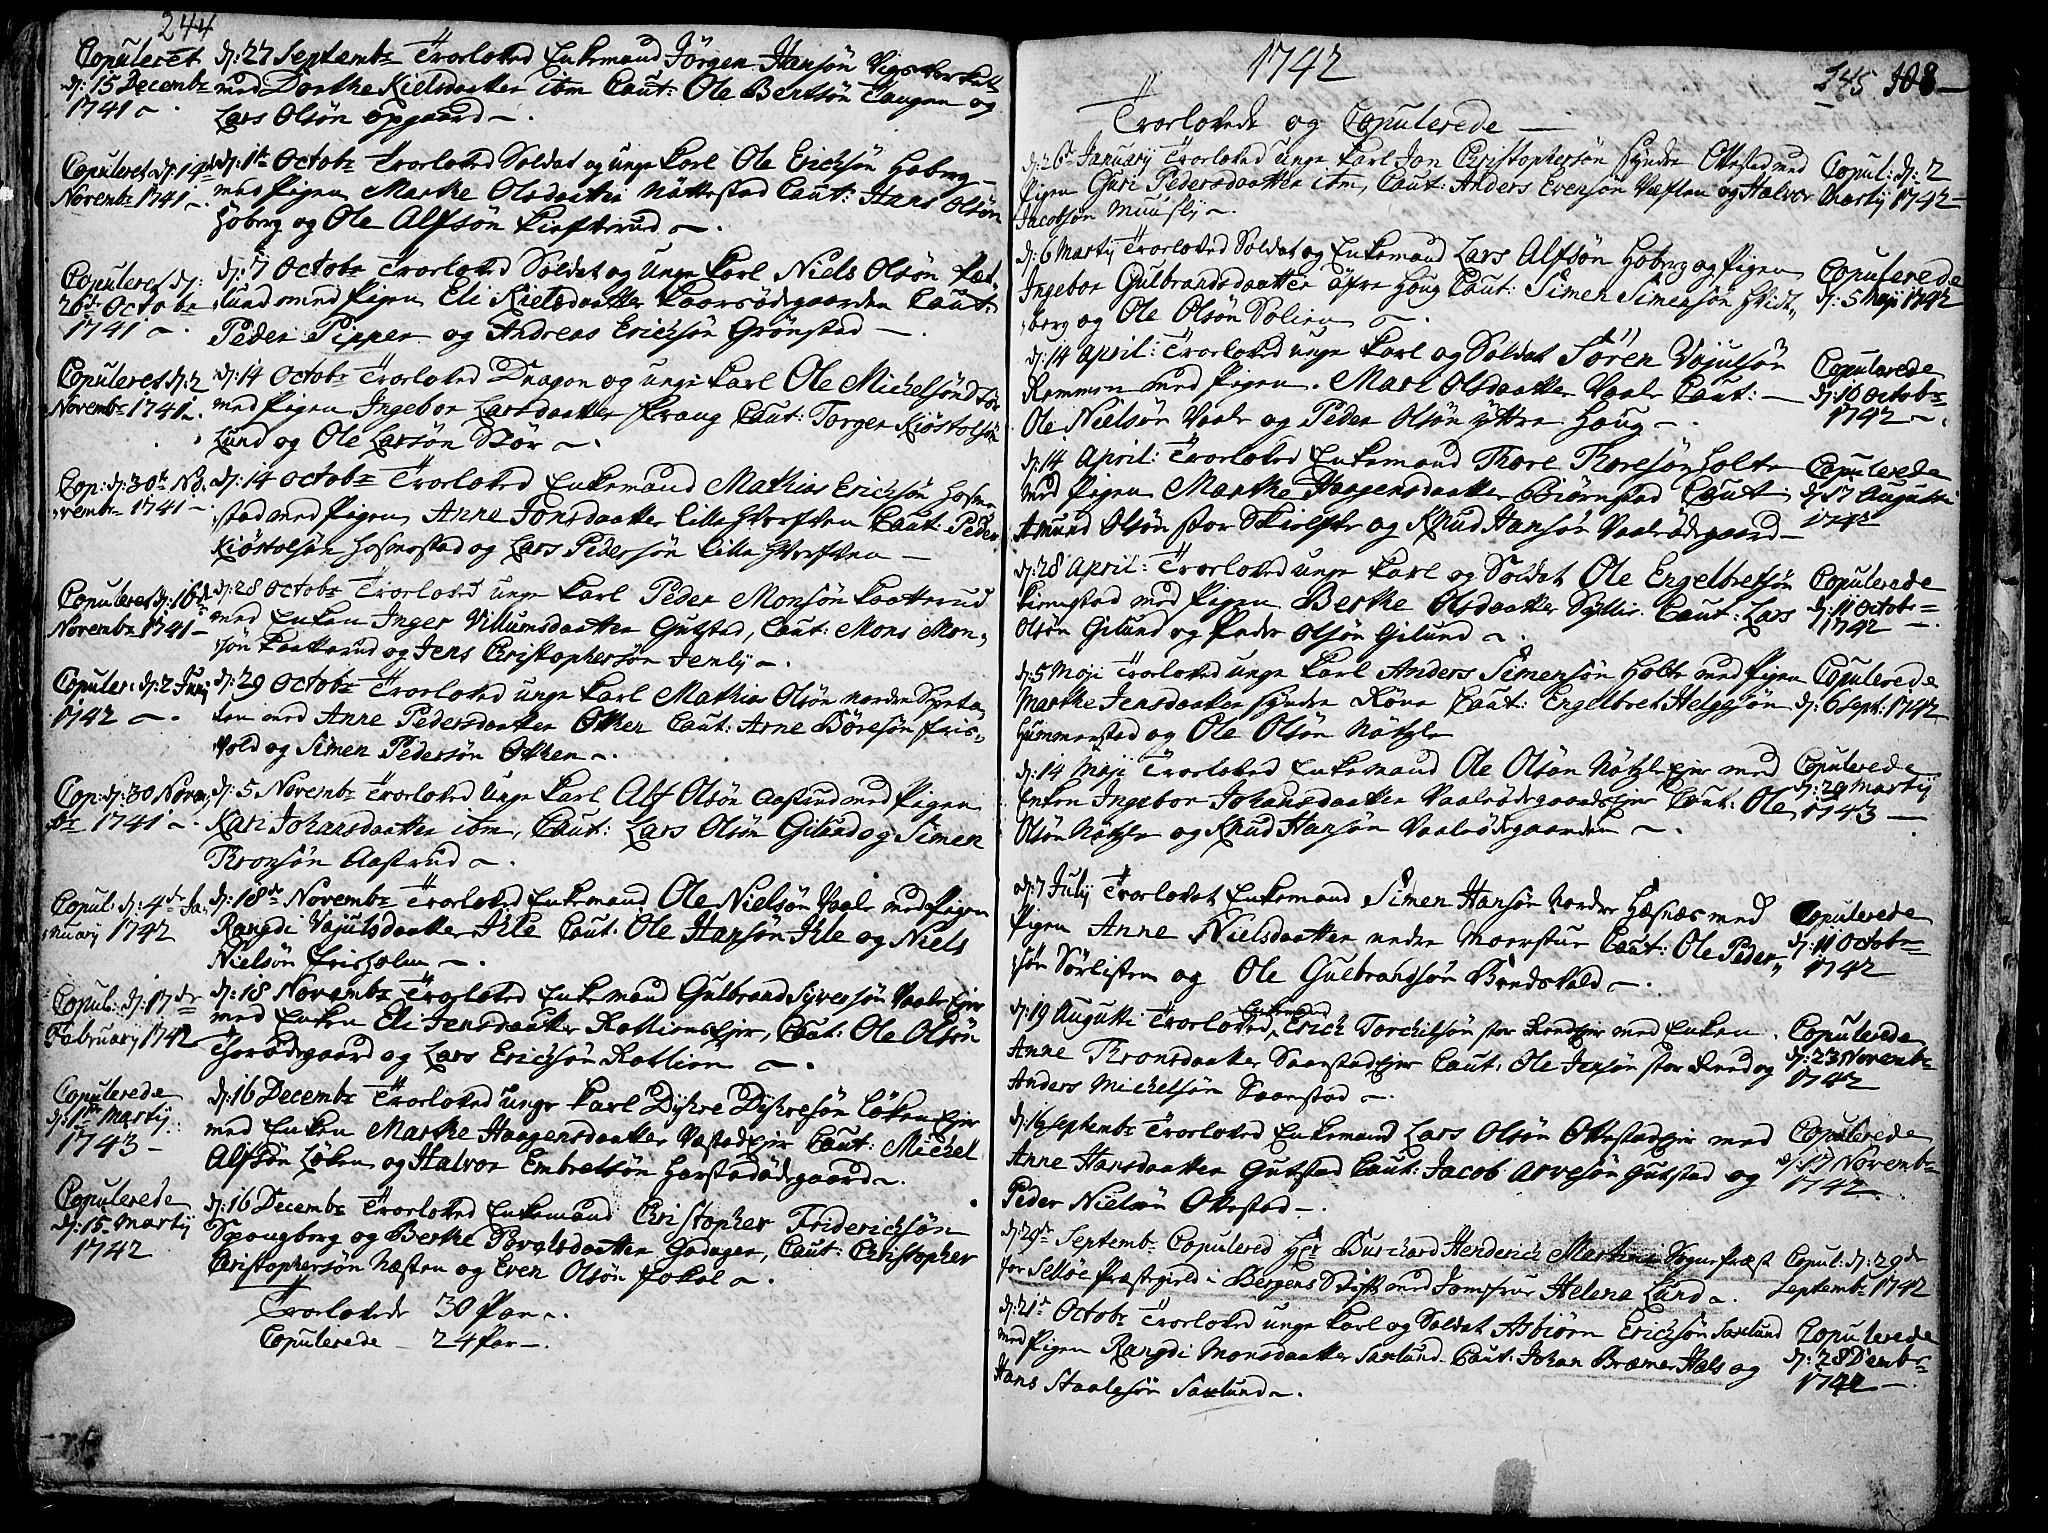 244
Copuleret
d: 15 Decembr
1741
d: 27 Septembr Troeloved Enkemand Jörgen Hansön
med Dorthe Kielsdaatter ibm Caut: Ole Bentsön Taugen og
Lars Olsön Opgaard
Copuleret d: 14de
Novembr 1741
d: 1te Octobr Troelovet Soldat og unge Karl Ole Ericksön Hoberg
med Pigen Marthe Olsdaatter Nöttestad Caut: Hans Olsön
Hoberg og Ole Alfsön
Copuleret d:
26de Octobr
1741
d: 7 Octobr Troeloved Soldat og Unge Karl Niels Olsön
lund med Pigen Eli Kielsdaatter Kaarsödegaarden Caut:
Peder Pipper og Andreas Ericksön Grönstad
Copuleret d: 2
Novembr 1741
d: 14 Octobr Troeloved Dragon og unge Karl Ole Michelsön Stör
med Pigen Ingebor Larsdaatter Krang Caut: Torger Kiöstolsön
Lund og Ole Larsön Stör
Cop: d: 30te No-
vembr 1741
d: 14 Octobr Troeloved Enkemand Mathias Ericksön Hosme
stad med Pigen Anne Jonsdaatter lille Caut: Peder
Kiöstolsön Hosmestad og Lars Pedersön lille
Copuleret d: 16de
Novembr 1741
d: 28 Octobr Troeloved unge Karl Peder Monsön Kaatterud
med Enken Inger Villumsdaatter Gutstad, Caut: Mons Mon-
sön Kaatterud og Jens Christophersön Jemly
Copuler: d: 2 Junij
1742
d: 29 Octobr Troeloved unge Karl Mathias Olsön nordre Speta-
len med Anne Pedersdaatter Otker Caut: Arne Böresön Fris-
vold og Simen Pedersön Otken
Cop: d: 30 Novem-
br 1741
d: 5 Novembr Troeloved Unge Karl Alf Olsön Aastrud med Pigen
Kari Johansdaatter ibm, Caut: Lars Olsön Gilund og Simen
Thronsön Aastrud
Copul: d: 4de Ja-
nuary 1742
d: 18de Novembr Troeloved Enkemand Ole Nielsön Vaale med Pigen
Rangdi Vajulsdaatter Ille Caut: Ole Hansön Ille og Niels
Nielsön Frisholm
Copul: d: 17de
February 1742
d: 18 Novembr Troeloved Enkemand Gulbrand Syversön Vaale Ejer
med Enken Eli Jensdaatter Rotlien Ejer, Caut: Ole Olsön
Thorödegaard og Lars Ericksön Rotlien
Copulerede
d: 1te Martij
1743
d: 16 Decembr Troeloved unge Karl Dyhre Dyhresön Löken Ejer
med Enken Marthe Haagensdaatter Vestad Ejer Caut: Michel
Alfsön Löken og Halvor Embretsön Harstadödegaard
Copulerede
d: 15 Martij
1742
d: 16 Decembr Troeloved Enkemand Christopher Friderichsön
Spangberg og Berthe Povelsdaatter Godager, Caut: Christopher
Christophersön Næsten og Even Olsön Fokol
Troelovede 30 Par
Copulerede 24 Par
1742
245 108
Troelovede og Copulerede
d: 26de January Troeloved unge Karl Jon Christophersön Syndre Okestad med
Pigen Guri Pedersdaatter ibm, Caut: Anders Evensön Væsten og Halvor
Jacobsön
Copul: d: 2
Martij 1742
d: 6 Martij Troeloved Soldat og Enkemand Lars Alfsön Hoberg og Pigen
Ingebor Gulbrandsdaatter öfre Houg Caut: Simen Simensön Hvidt-
berg og Ole Olsön Solien
Copulerede
d: 5 Maji 1742
d: 14 April: Troeloved unge Karl og Soldat Sören Vajulsön
Rommen med Pigen Mari Olsdaatter Vaale Caut:
Ole Nielsön Vaale og Peder Olsön yttre Houg
Copulerede
d: 10 Octobr
1742
d: 14 April: Troeloved Enkemand Thore Thoresön Holte
med Pigen Marthe Haagensdaatter Biörnstad Caut
Amund Olsön stor Skiolfte og Knud Hansön Vaalesödegaard
Copulerede
d: 17 Augusti
1742
d: 28 April: Troeloved unge Karl og Soldat Ole Engelbretsön
med Pigen Berthe Olsdaatter Caut: Lars
Olsön Gilund og Peder Olsön Gilund
Copulerede
d: 11 Octobr
1742
d: 5 Maji Troeloved unge Karl Anders Simensön Holte med Pigen
Marthe Jensdaatter syndre Röne Caut: Engelbret Helgesön
Hummerstad og Ole Olsön Nötzle
Copulerede
d: 6 Sept: 1742
d: 14 Maji Troeloved Enkemand Ole Olsön Nötzle Ejer med
Enken Ingebor Johansdaatter Vaalesödegaards Ejer Caut: Ole
Olsön Nötzle og Knud Hansön Vaalesödegaarden
Copulerede
d: 29 Martij
1743
d: 7 July Troelovet Enkemand Simen Hansön Nordre Hæsnæs med
Pigen Anne Nielsdaatter nedre Moerstue Caut: Ole Peder-
sön Sörlisten og Ole Gulbrandsön Bredsvold
Copulerede
d: 11 Octobr
1742
d: 19 Augusti Troeloved Enkemand Erich Torchilsön stor Reed Ejer med Enken
Anne Thronsdaatter Saanstad Ejer Caut: Ole Jensön stor Reed og
Anders Michelsön Saanstad
Copulerede
d: 23 Novembr
1742
d: 16 Septembr Troeloved Enkemand Lars Olsön Okestad Ejer med
Anne Hansdaatter Gutstad Caut: Jacob Arvesön Gutstad og
Peder Nielsön Okestad
Copulerede
d: 17 Novembr
1742
d: 29de Septembr Copulered Hr Burchard Henderich Martini Sogne Præst
for Selloe Præstegield i Bergens Stift med Jomfrue Helena Lund
Copul: d: 29de
Septembr 1742
d: 21de Octobr Troeloved unge Karl og Soldat Asbiörn Ericksön Saxlund
med Pigen Rangdi Monsdaatter Saxlund Caut: Johan Bræmer Hals og
Hans Staalesön Saxlund
Copulerede
d: 28 Dcembr
1742